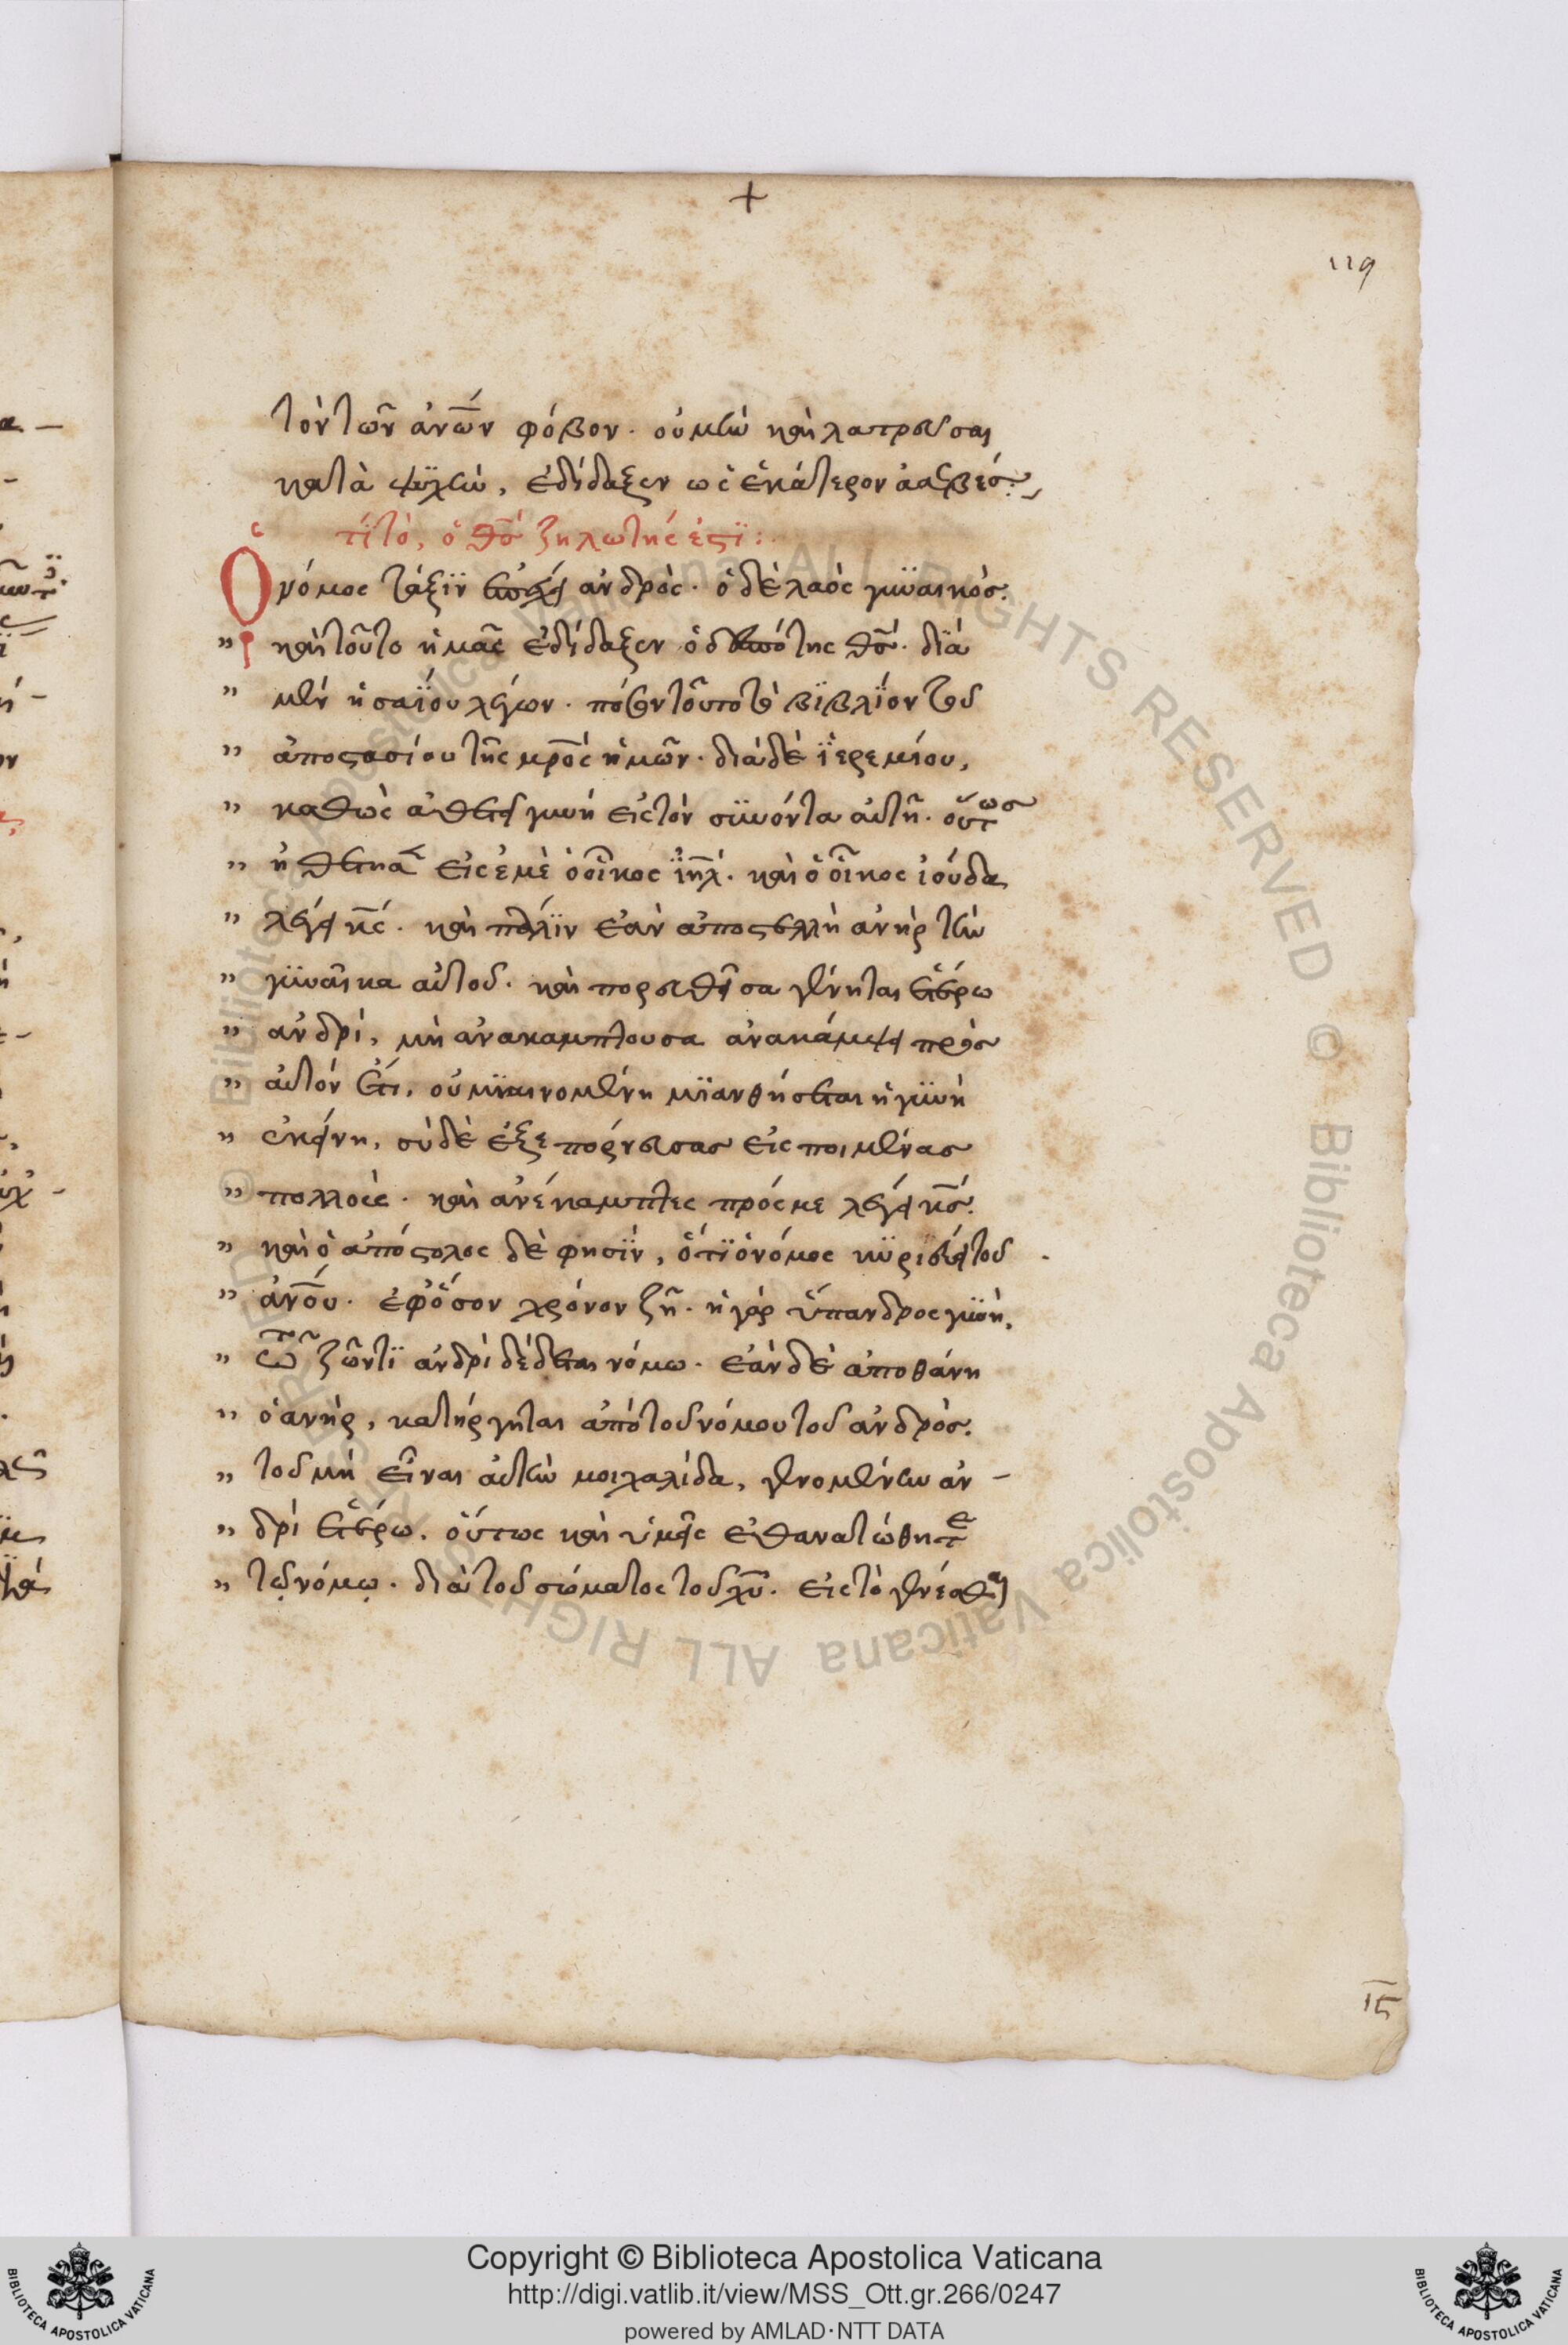 +
119
τὸν τῶν ἀν̅ω̅ν φόβον· οὐ μὴν καὶ λατρεῦσαι
κατὰ ψϋχὴν, ἐδίδαξεν ὡς ἑκάτερον ἀσεβές:
τί τὸ, ὁ θ̅ς̅ ζηλωτής ἐστϊ:
Ὁ νόμος τάξϊν ἐπέχει ἀνδρὸς· ὁ δὲ λαὸς γυναικός.
" καὶ τοῦτο ἡμᾶς ἐδίδαξεν ὁ δεσπότης θ̅ς̅· δϊὰ
" μὲν ἡσαϊου λέγων· πόθεν τοῦτο τὸ βϊβλϊον τοῦ
" ἀποστασίου τῆς μ̅ρ̅ο̅ς̅ ἡμῶν· διὰ δὲ ϊερεμίου,
" καθὼς ἀθετεῖ γυνή εἰς τὸν συνόντα αὐτῆ· οὕτως
" ἠθέτησεν εἰς ἐμὲ ὁ οἶκος ϊ̅η̅λ̅· καὶ ὁ οἶκος ἰούδα
" λέγει κ̅ς̅· καὶ πάλϊν ἐὰν ἀποστέλλη ἀνὴρ τὴν
" γυναῖκα αὐτοῦ· καὶ πορευθεῖσα γένηται ἑτέρω
" ἀνδρί, μὴ ἀνακαμπτουσα ἀνακάμψει πρὸς
" αὐτόν ἔτι, οὐ μϊαινομένη μϊανθήσεται ἡ γυνὴ
" ἐκείνη, σὺ δὲ ἐξεπόρνευσας εἰς ποιμένας
" πολλοὺς· καὶ ἀνέκαμπτες πρός με λέγει κ̅ς̅.
" καὶ ὁ ἀπόστολος δὲ φησϊν, ὅτϊ ὁ νόμος κϋριεύει τοῦ
" ἀν̅ο̅υ· ἐφ ὅσον χρόνον ζῆ· ἡ γὰρ ὕπανδρος γυνὴ,
" τῶ ζῶντϊ ἀνδρὶ δέδεται νόμω· ἐὰν δὲ ἀποθάνη
" ὁ ἀνὴρ, κατήργηται ἀπὸ τοῦ νόμου τοῦ ἀνδρός.
" τοῦ μὴ εἶναι αὐτὴν μοιχαλίδα, γενομένην ἀν-
" δρὶ ἑτέρω. οὕτως καὶ ὑμεῖς ἐθανατώθητε
" τῷ νόμῳ· διὰ τοῦ σώματος τοῦ χ̅υ̅· εἰς τὸ γενέσθαι
ι̅ς̅
Copyright © Biblioteca Apostolica Vaticana
http://digi.vatlib.it/view/MSS_Ott.gr.266/0247
powered by AMLAD·NTT DATA